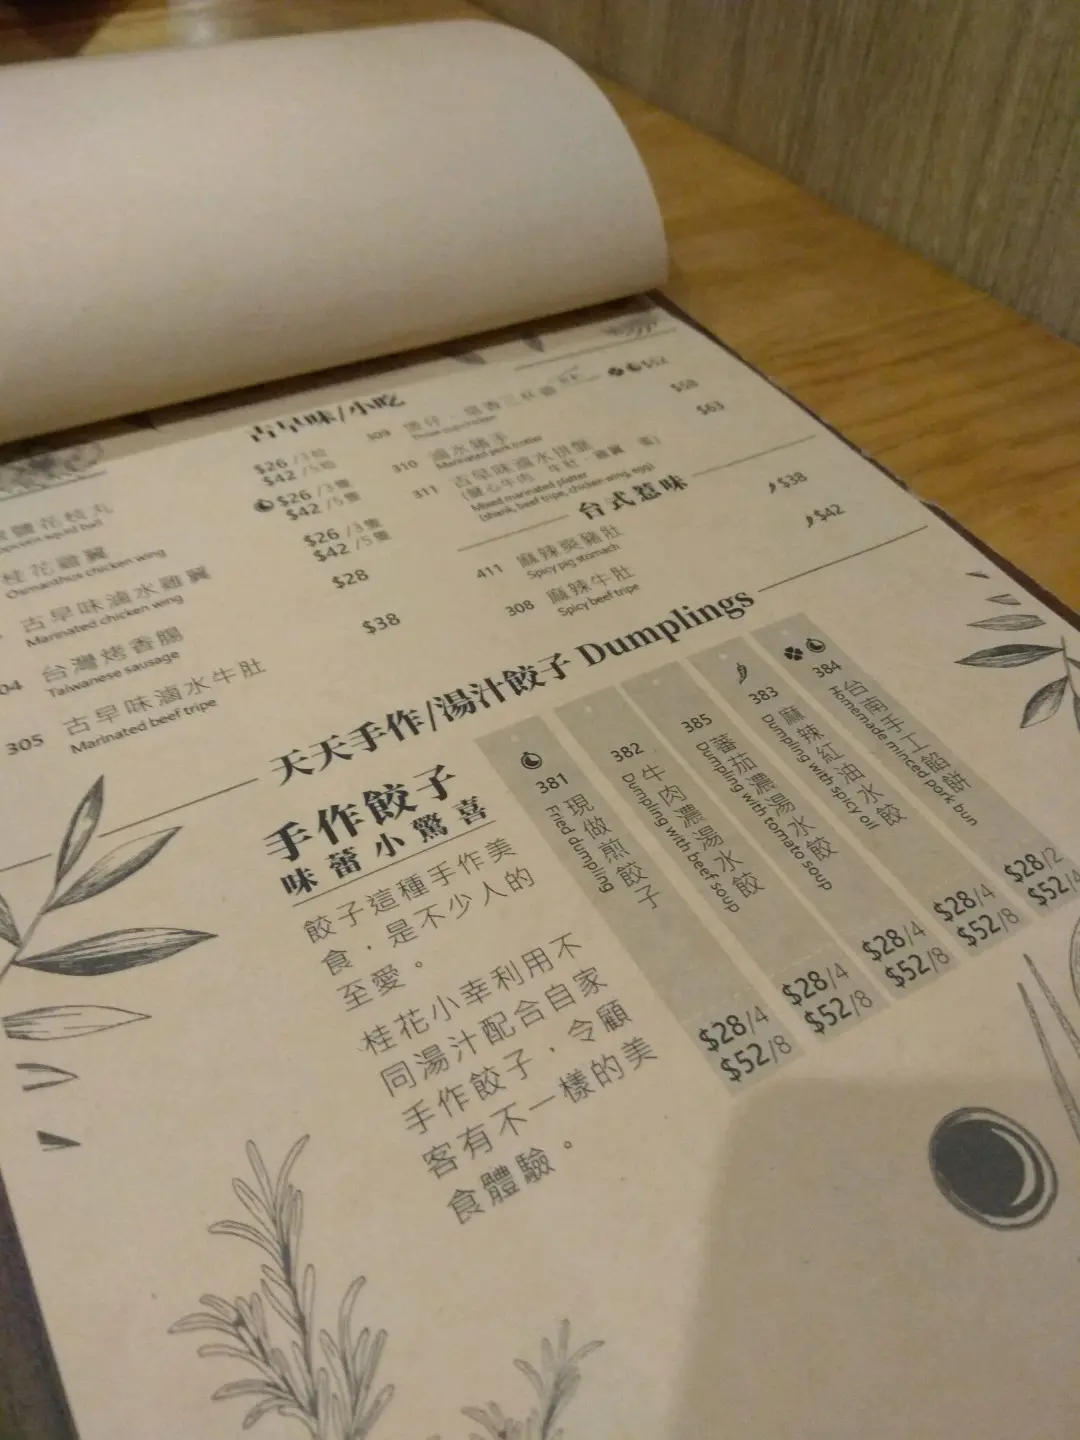 古早味/小吃
花枝丸
squid ball
$26/3粒
$42/5粒
桂花雞翼
Osmanthus chicken wing
$26/3隻
$42/5隻
古早味滷水雞翼
Marinated chicken wing
$26/3隻
$42/5隻
04 台灣烤香腸
Taiwanese sausage
$28
305 古早味滷水牛肚
Marinated beef tripe
$38
309
三杯雞
Three cup chicken
$52
310 滷水豬手
Marinated pork trotter
$58
311 古早味滷水拼盤
Mixed marinated platter
(shank, beef tripe, chicken wing, egg)
$63
台式惹味
411 麻辣爽豬肚
Spicy pig stomach
$38
308 麻辣牛肚
Spicy beef tripe
$42
天天手作/湯汁餃子 Dumplings
手作餃子
味蕾小驚喜
餃子這種手作美
食，是不少人的
至愛。
桂花小幸利用不
同湯汁配合自家
手作餃子，令顧
客有不一樣的美
食體驗。
381
現做煎餃子
Fried dumpling
$28/4
$52/8
382
牛肉濃湯水餃
Dumpling with beef soup
$28/4
$52/8
385
蕃茄濃湯水餃
Dumpling with tomato soup
$28/4
$52/8
383
麻辣紅油水餃
Dumpling with spicy oil
$28/4
$52/8
384
台南手工餡餅
Homemade minced pork bun
$28/2
$52/4